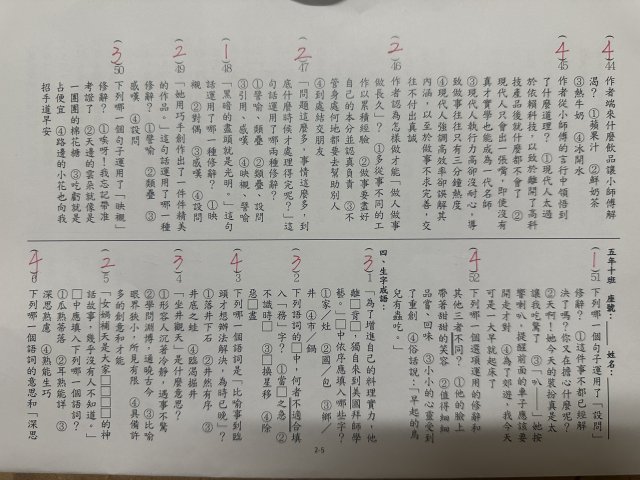 (4)44 作者端來什麼飲品讓小師傅解
渴? ①蘋果汁 ②鮮奶茶
③熱牛奶 ④冰開水
(4)45 作者從小師傅的言行中領悟到
了什麼道理? ①現代人太過
於依賴科技,以致於離開了高科
技產品後就什麼都不會了 ②
現代人只會出一張嘴,即使沒有
真才實學也能成為一代名師
③現代人執行力高卻沒耐心,導
致做事往往只有三分鐘熱度
④現代人強調高效率卻誤解其
內涵,以至於做事不求完善,交
往不付出真誠
(2)46 作者認為怎樣做才能「做人做事
做長久」? ①多從事不同的工
作以累積經驗 ②做事要盡好
自己的本分並認真負責 ③不
管身處何地都要去幫助別人
④到處結交朋友
(2)47 「問題這麼多,事情這麼多,到
底什麼時候才處理得完呢?」這
句話運用了哪兩種修辭?
①譬喻、類疊 ②類疊、設問
③引用、感嘆 ④映襯、譬喻
(1)48 「黑暗的盡頭就是光明。」這句
話運用了哪一種修辭? ①映
襯 ②對偶 ③感嘆 ④設問
(2)49 「她用巧手創作出了一件件精美
的作品。」這句話運用了哪一種
修辭? ①譬喻 ②類疊 ③
感嘆 ④設問
(3)50 下列哪一個句子運用了「映襯」
修辭? ①唉呀!我忘記帶准
考證了 ②天邊的雲朵就像是
一團團的棉花糖 ③吃虧就是
占便宜 ④路邊的小花也向我
招手道早安
五年十班 座號: 姓名:
(1)51 下列哪一個句子運用了「設問」
修辭? ①這件事不都已經解
決了嗎?你又在擔心什麼呢?
②天啊!她今天的裝扮真是太
讓我吃驚了 ③「叭——」她按
響喇叭,提醒前面的車子應該要
開走才對 ④為了郊遊,我今天
可是一大早就起床了
(4)52 下列哪一個選項運用的修辭和
其他三者不同? ①他的臉上
帶著甜甜的笑容 ②值得細細
品嘗、回味 ③小小的心靈受到
了重創 ④俗話說:「早起的鳥
兒有蟲吃。」
四、生字成語:
(3)1 「為了增進自己的料理實力,他
離□背□,獨自來到美國拜師學
藝。」□中依序應填入哪些字?
①家/灶 ②國/包 ③鄉/
井 ④市/鍋
(3)2 下列語詞的□中,何者不適合填
入「務」字? ①當□之急 ②
不識時□ ③□換星移 ④除
惡□盡
(4)3 下列哪一個語詞是「比喻事到臨
頭才想辦法解決,為時已晚」?
①落井下石 ②井然有序 ③
井底之蛙 ④臨渴掘井
(3)4 「坐井觀天」是什麼意思?
①形容人沉著冷靜,遇事不驚
②學問淵博,通曉古今 ③比喻
眼界狹小,所見有限 ④具備許
多的創意和才能
(2)5 「女媧補天是大家□□□□的神
話故事,幾乎沒有人不知道。」
□中應填入下列哪一個語詞?
①瓜熟蒂落 ②耳熟能詳 ③
深思熟慮 ④熟能生巧
(4)6 下列哪一個語詞的意思和「深思
2-5